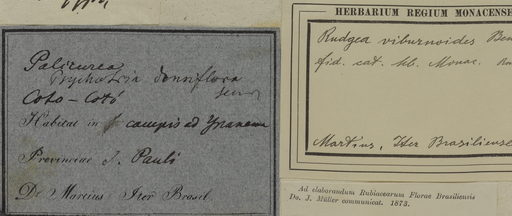 Palicurea
Psychotria densiflora
Coto - Cotó
Habitat in campis ad Ypanema
Provinciae S. Pauli
Dr Martius Iter Brasil
HERBARIUM REGIUM MONACENSE
Rudgea viburnoides Ben
fid. cat. hb. Monac.
Martius, Iter Brasiliense
Ad elaborandum Rubiacearum Florae Brasiliensis
Do. J. Müller communicat. 1873.